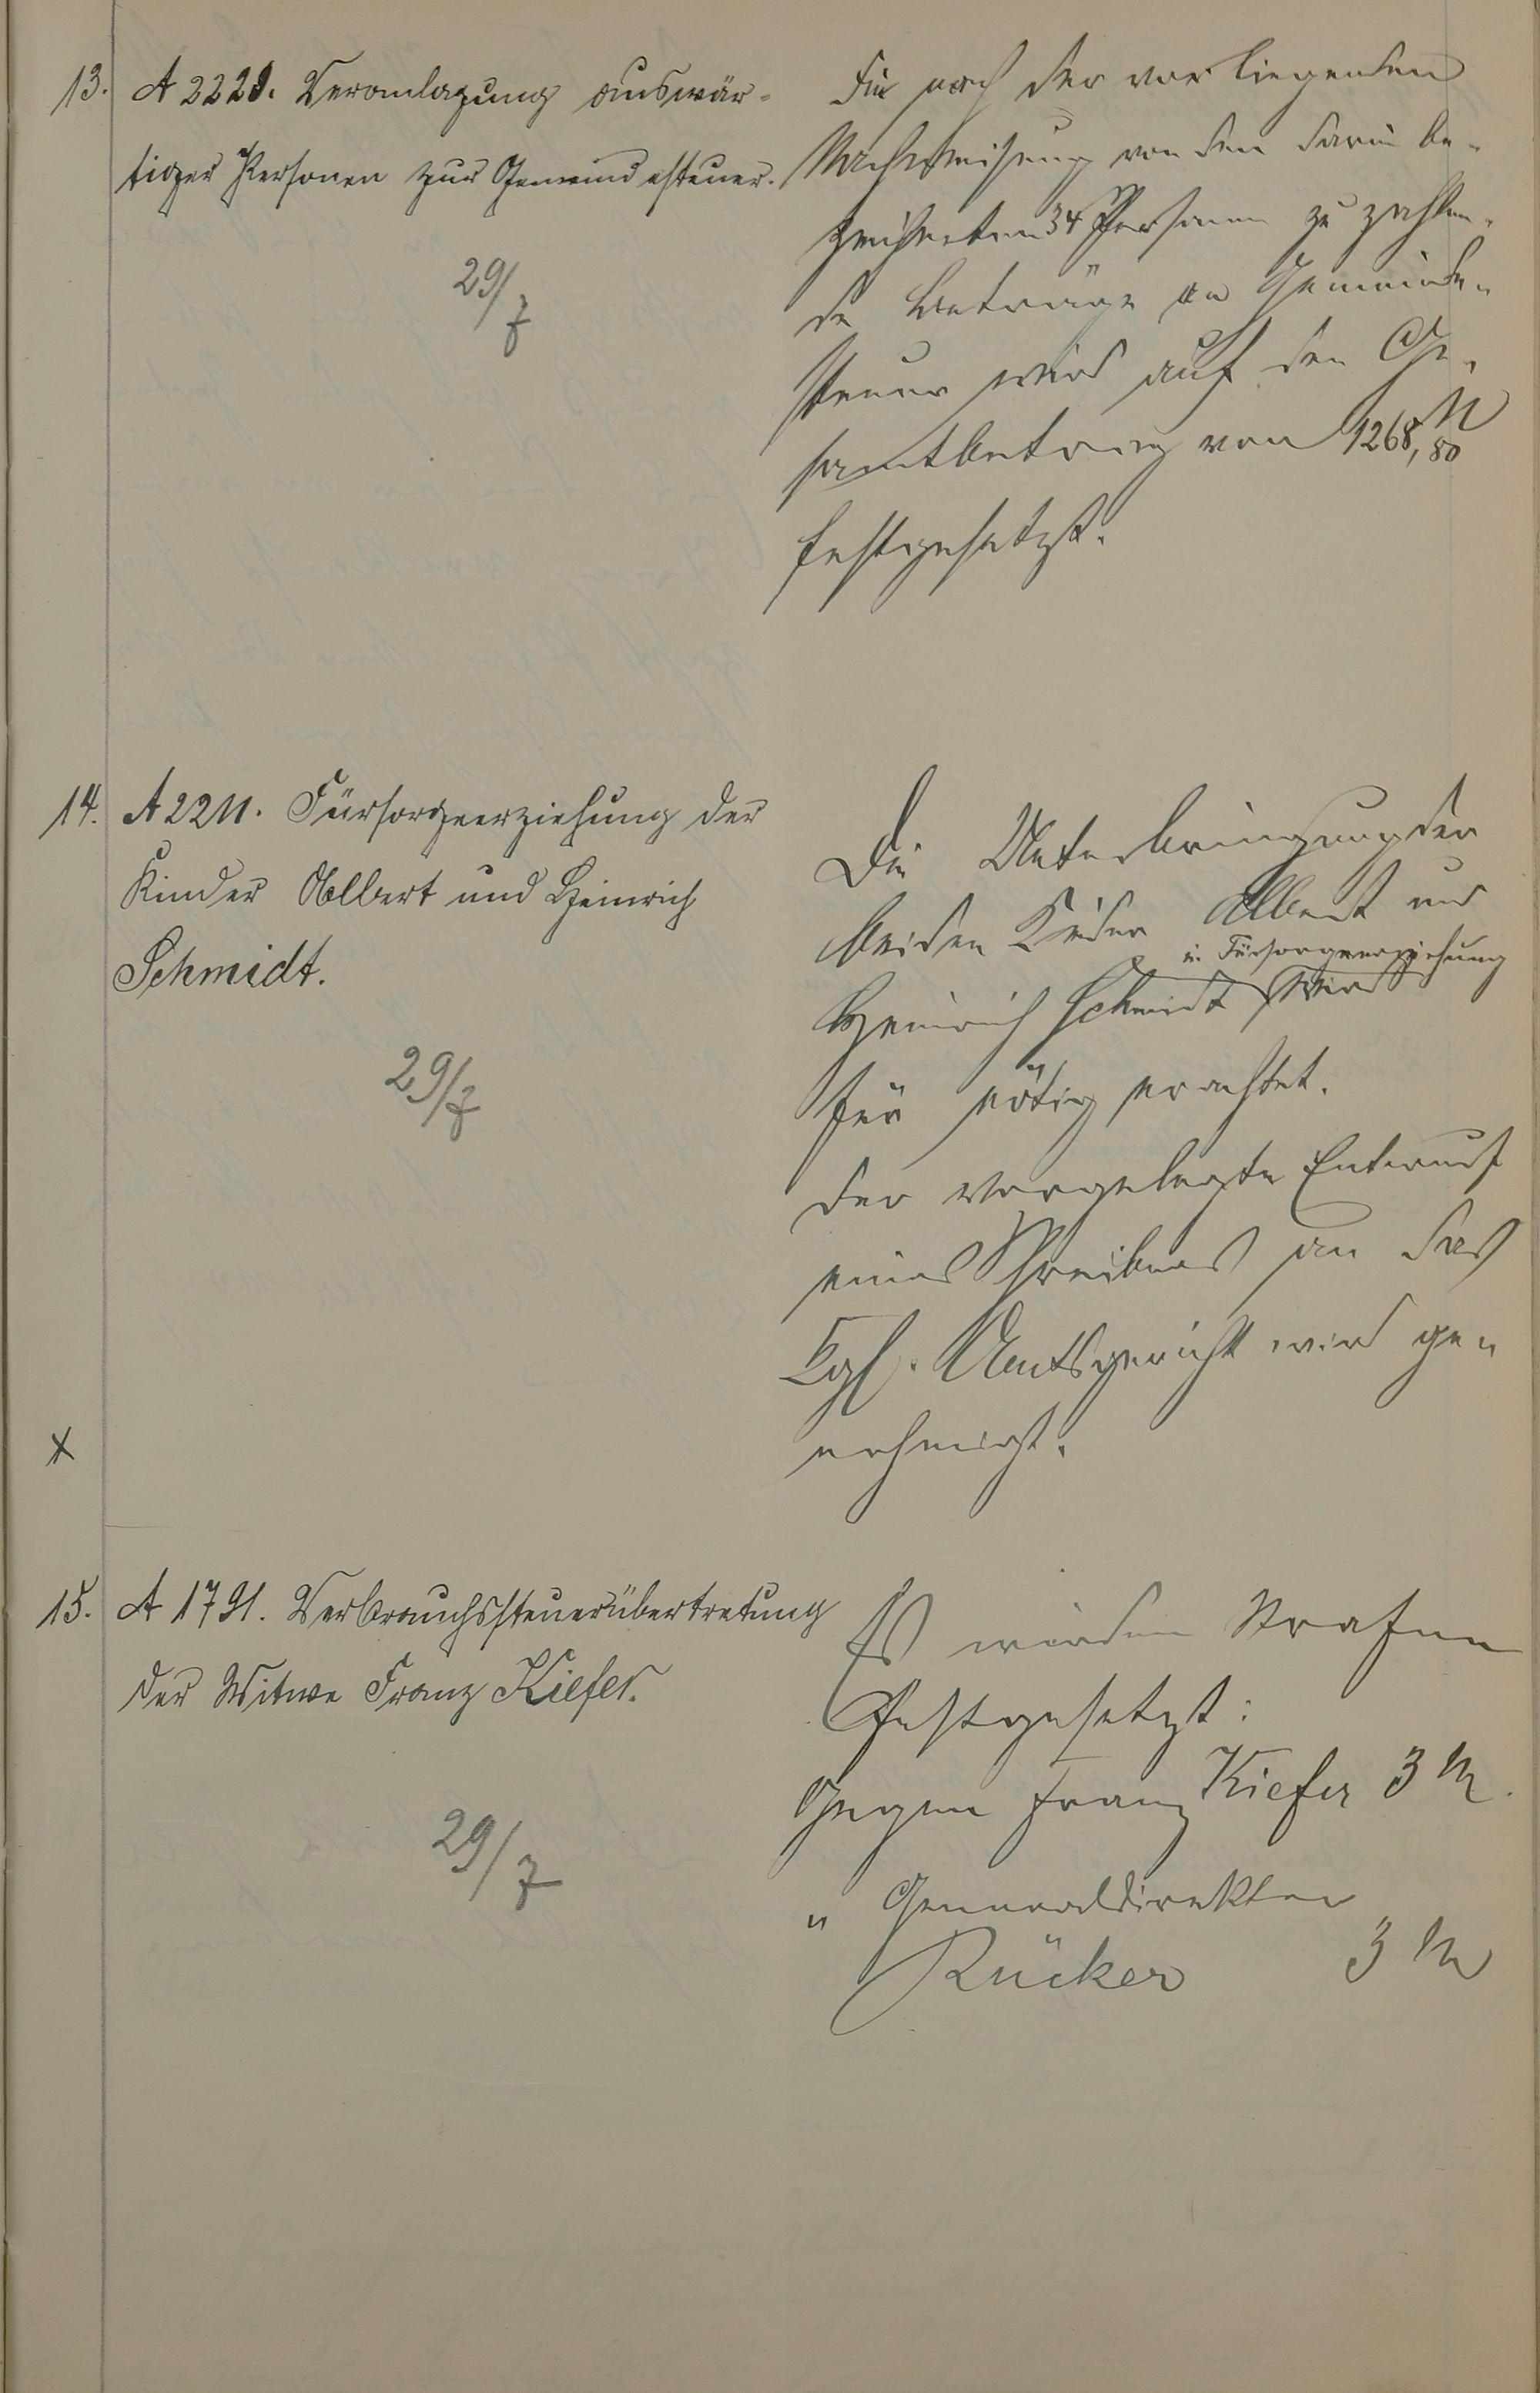 13. A 2221. Veranlagung auswär-
tiger Personen zur Gemeindesteuer.
29/7
Die nach der vorliegenden
Nachweisung von den darin be-
zeichneten 34 Personen zu zahlen-
de Beträge an Gemeinde-
steuer wird auf den Ge-
samtbetrag von 1268,80 M
festgesetzt.
14. A 2211. Fürsorgeerziehung der
Kinder Albert und Heinrich
Schmidt.
29/7
Die Unterbringung der
beiden Kinder Albert und
in Fürsorgeerziehung
Heinrich Schmidt wird
für nötig erachtet.
Der vorgelegte Entwurf
eines Schreibens an das
Kgl. Amtsgericht wird ge-
nehmigt.
x
15. A 1791. Verbrauchssteuerübertretung
der Witwe Franz Kiefer.
29/7
Es werden Strafen
festgesetzt:
Gegen Franz Kiefer 3 M.
" Generaldirektor
Rücker 3 M